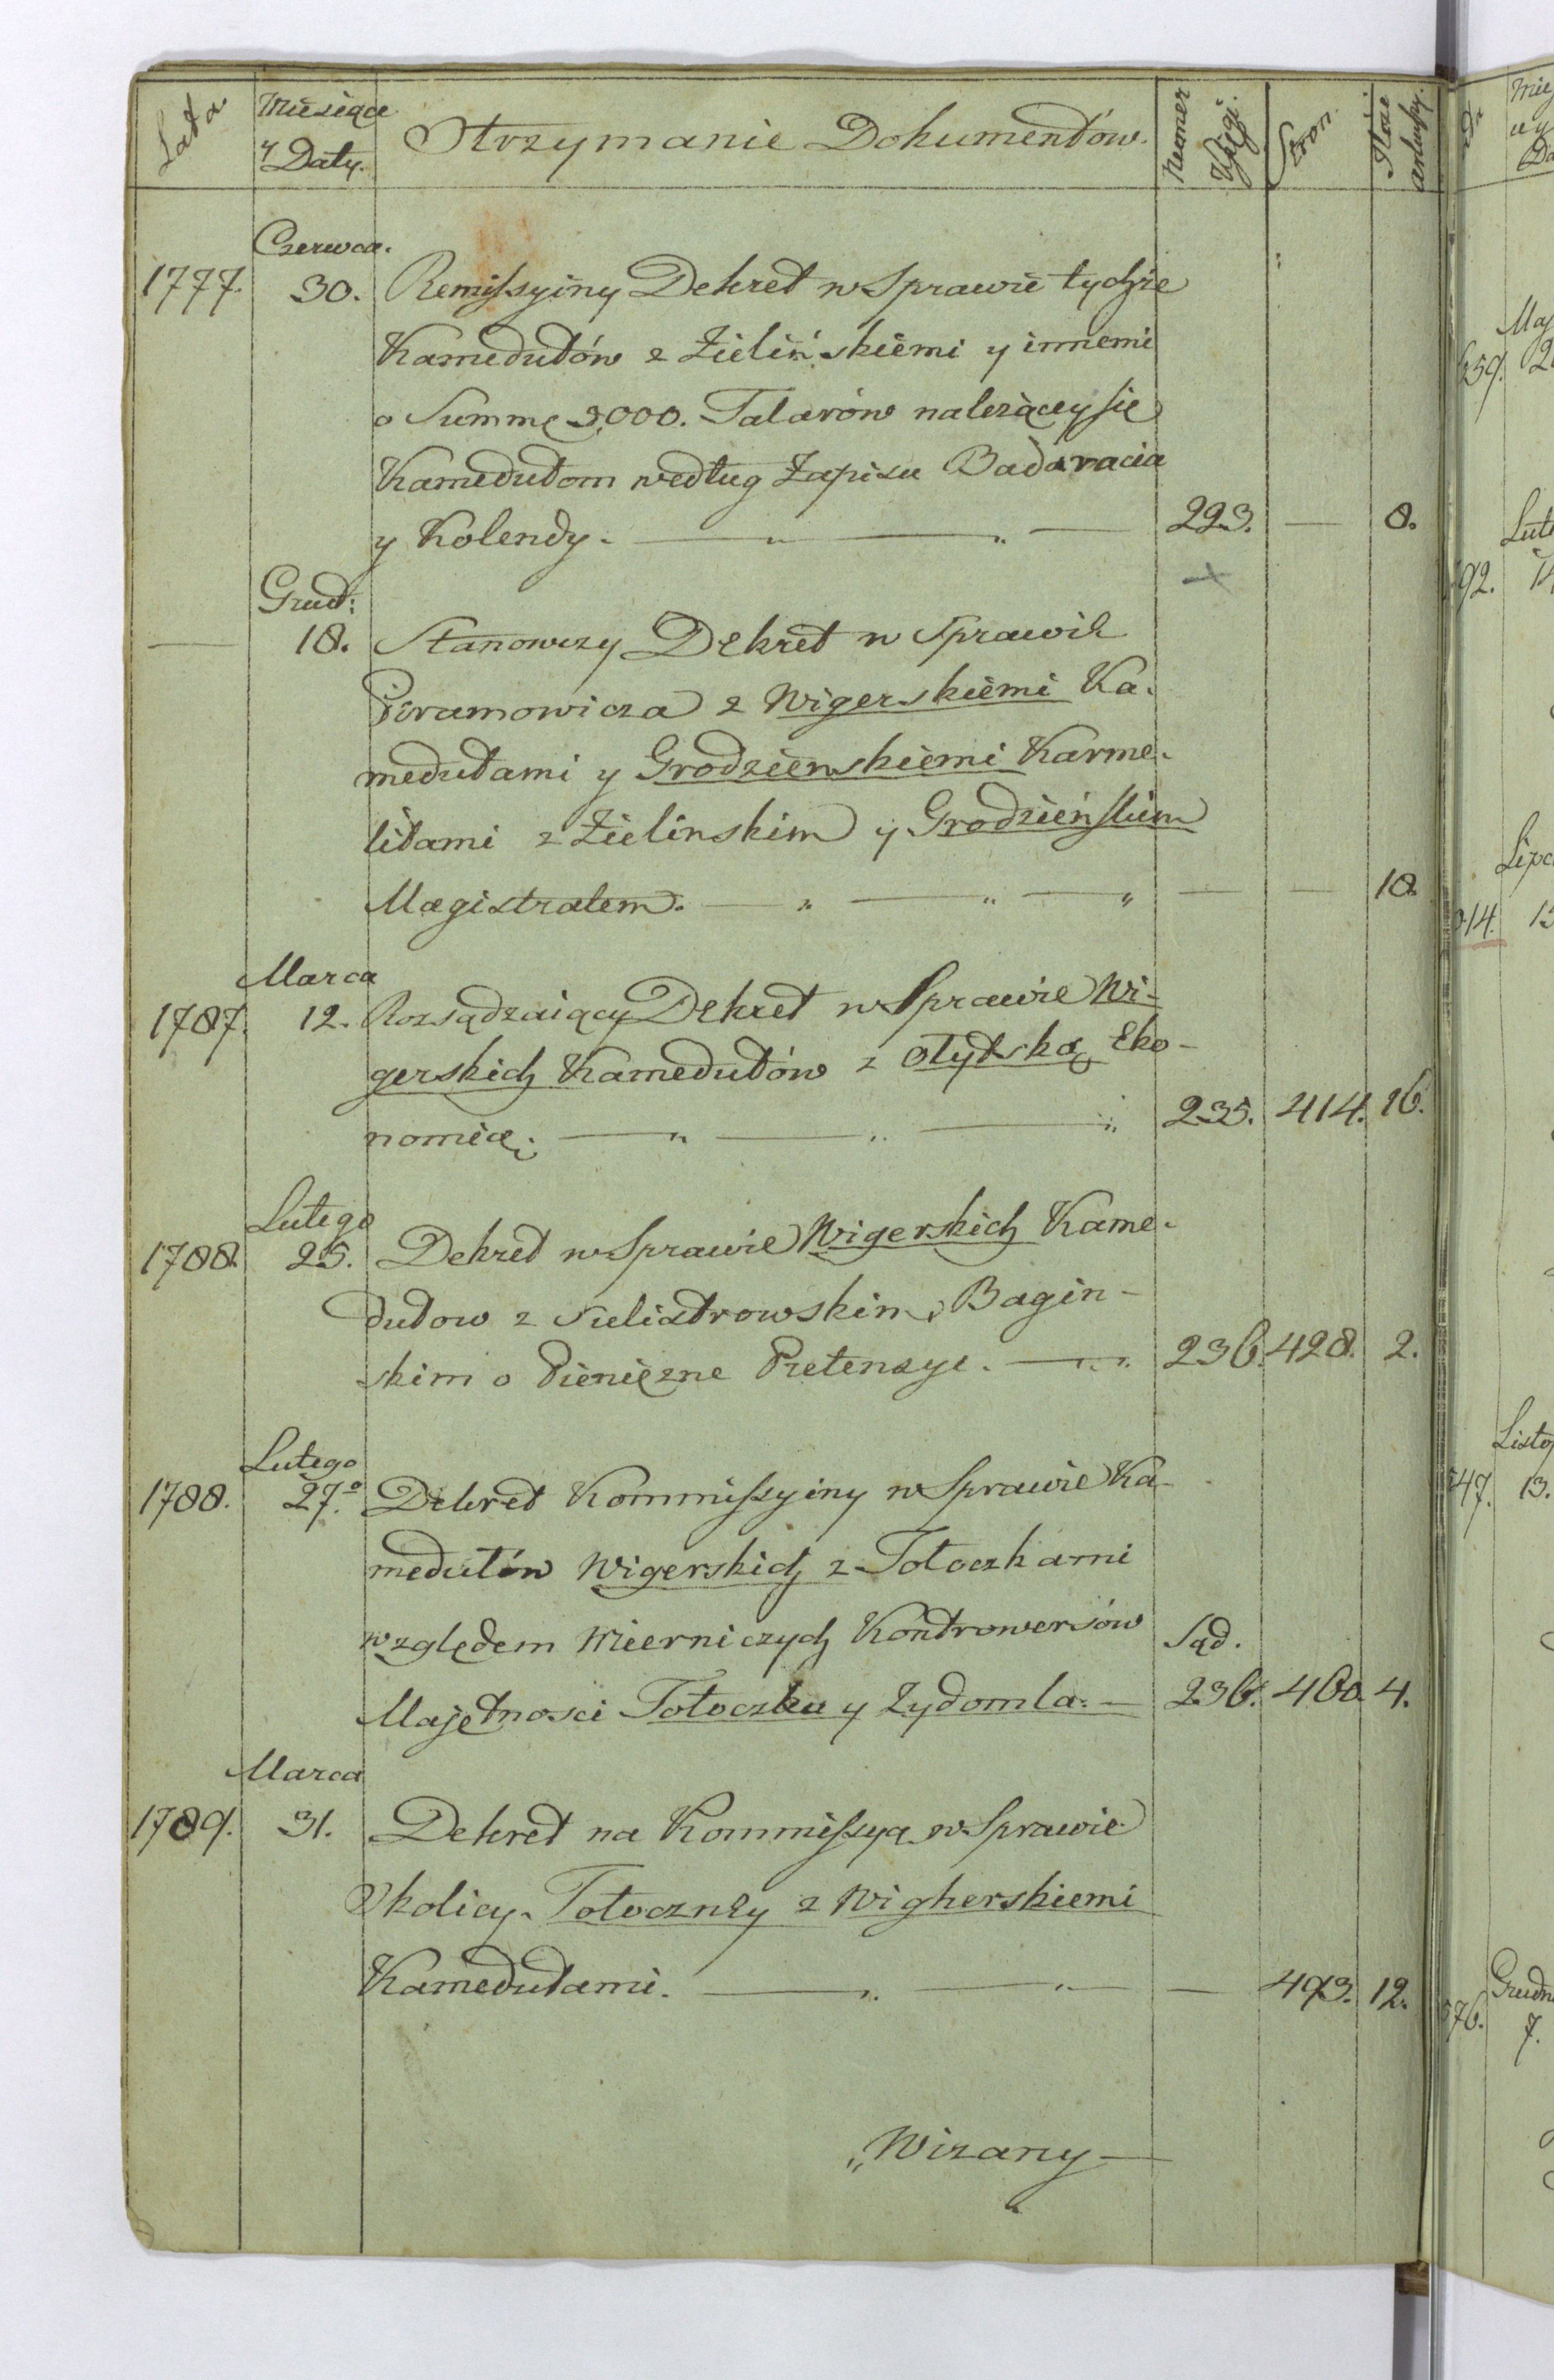 Lata Miesiące y Daty. Otrzymanie Dokumentów. Numer Xięgi. Stron. Ilość arkuszy.
Czerwca.
1777. 30. Remissyiny Dekret w Sprawie tychże
Kamedułów z Zielińskiemi y innemi
o Summę 3,000. Talarów należącey się
Kamedułom według Zapisu Badaracia
y Kolendy. 223. — 8.
Grud:
— 18. Stanowczy Dekret w Sprawie
Piramowicza z Wigerskiemi Ka-
medułami y Grodzienskiemi Karme-
litami z Zielinskim y Grodzieńskim
Magistratem. — — 18.
Marca
1787. 12. Rozsądzaiący Dekret w Sprawie Wi-
gerskich Kamedułów z Olytską Eko-
nomią. 235. 414. 16.
Lutego
1788. 25. Dekret w Sprawie Wigerskich Kame-
dułow z Sulistrowskim, Bagin-
skim o Pieniężne Pretensye. 236. 428. 2.
Lutego
1788. 27.º Dekret Kommissyiny w Sprawie Ka-
medułów Wigerskich z Tołoczkami
względem Mierniczych Kontrowersów Sąd.
Majętnosci Tołoczku y Zydomla. — 236. 460. 4.
Marca
1789. 31. Dekret na Kommissyą w Sprawie
Okolicy Tołoczney z Wigherskiemi
Kamedułami. — 493. 12.
„Wizany —